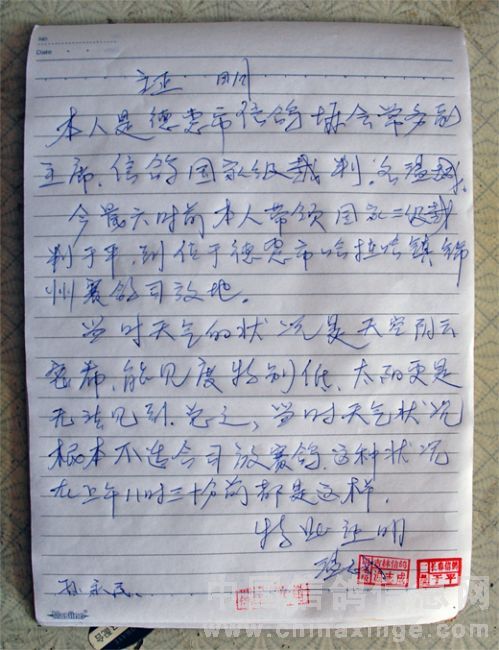 No
Date
证明
本人是德惠市信鸽协会常务副
主席，信鸽国家级裁判，
今晨六时前本人带领国家二级裁
判于平，到位于德惠市哈拉哈镇锦
州赛鸽司放地。
当时天气的状况是天空阴云
密布，能见度特别低，太阳更是
无法见到，总之，当时天气状况
根本不适合司放赛鸽，这种状况
在上午八时三十分前都是这样，
特此证明
孙永民
www.chinaxinge.com